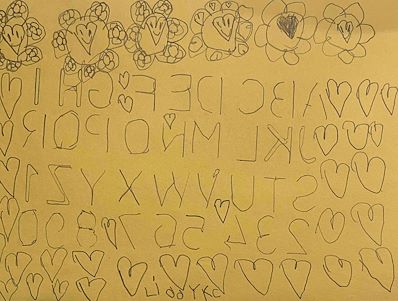 ABCDEFGHI
JKLMÑOPQR
STUVWXYZ1
234567890